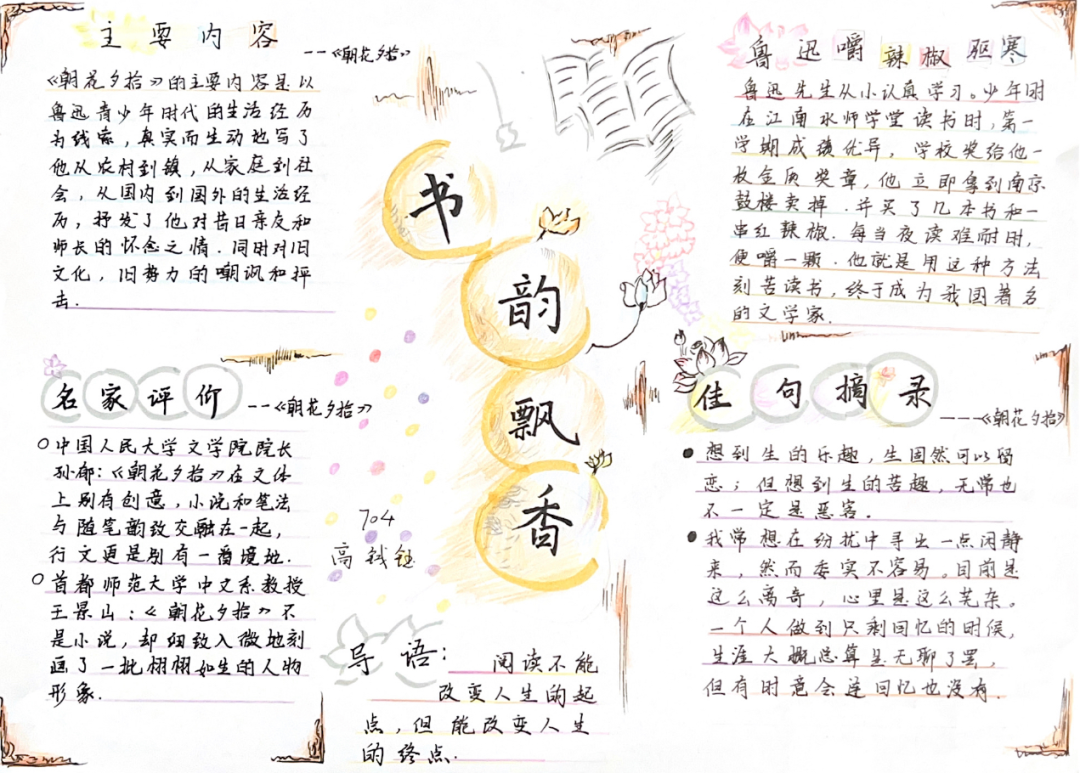 主要内容
--《朝花夕拾》
《朝花夕拾》的主要内容是以
鲁迅青少年时代的生活经历
为线索,真实而生动地写了
他从农村到镇,从家庭到社
会,从国内到国外的生活经
历,抒发了他对昔日亲友和
师长的怀念之情.同时对旧
文化,旧势力的嘲讽和抨
击.
鲁迅嚼辣椒驱寒
鲁迅先生从小认真学习。少年时
在江南水师学堂读书时,第一
学期成绩优异,学校奖给他一
枚金质奖章,他立即拿到南京
鼓楼卖掉.并买了几本书和一
串红辣椒.每当夜读难耐时,
便嚼一颗.他就是用这种方法
刻苦读书,终于成为我国著名
的文学家.
书
韵
飘
香
704
高钺钰
名家评价
--《朝花夕拾》
中国人民大学文学院院长
孙郁:《朝花夕拾》在文体
上别有创意,小说和笔法
与随笔韵致交融在一起,
行文更是别有一番境地.
首都师范大学中文系教授
王景山:《朝花夕拾》不
是小说,却细致入微地刻
画了一批栩栩如生的人物
形象.
导语:
阅读不能
改变人生的起
点,但能改变人生
的终点.
佳句摘录
---《朝花夕拾》
想到生的乐趣,生固然可以留
恋;但想到生的苦趣,无常也
不一定是恶客.
我常想在纷扰中寻出一点闲静
来,然而委实不容易。目前是
这么离奇,心里是这么芜杂。
一个人做到只剩回忆的时候,
生涯大概总算是无聊了罢,
但有时竟会连回忆也没有.